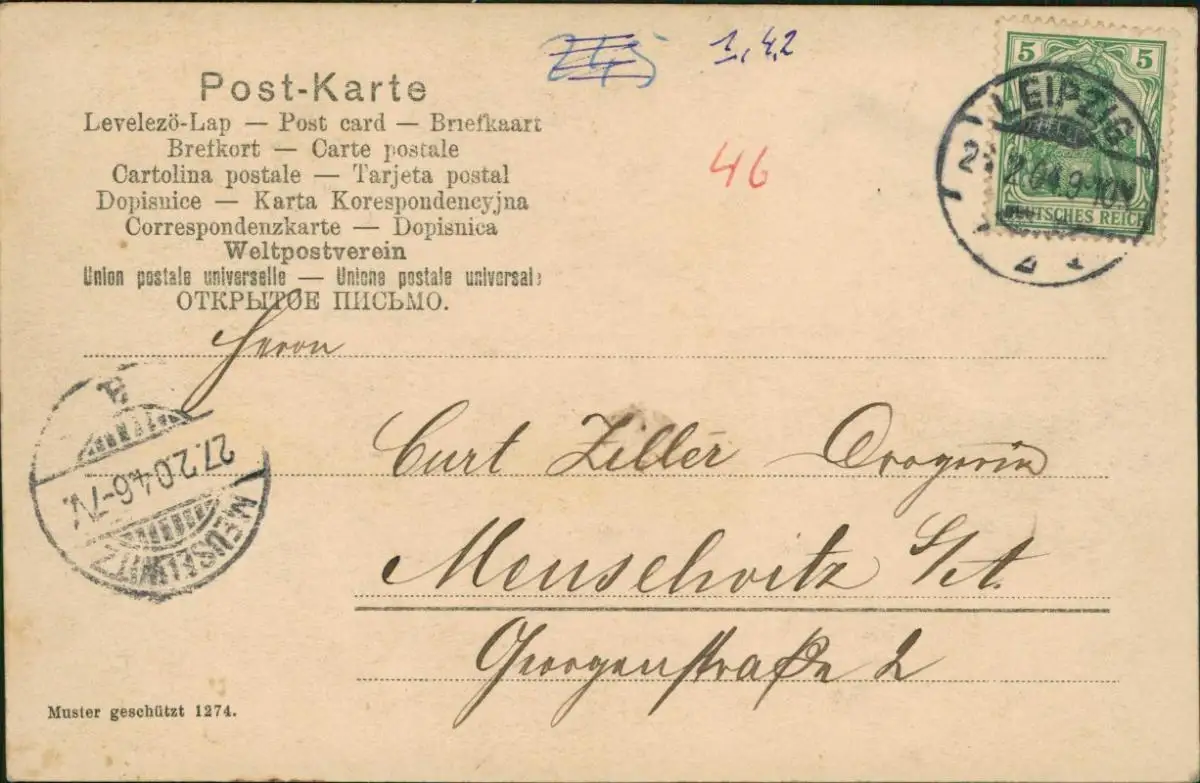 245
1,42
5 5
LEIPZIG
2.04.9-10
DEUTSCHES REICH
1
46
Post-Karte
Levelezö-Lap — Post card — Briefkaart
Brefkort — Carte postale
Cartolina postale — Tarjeta postal
Dopisnice — Karta Korespondencyjna
Correspondenzkarte — Dopisnica
Weltpostverein
Union postale universelle — Unione postale universale
ОТКРЫТОЕ ПИСЬМО.
Herrn
Curt Ziller Drogerie
Meuselwitz S/A.
Georgenstraße 2
27.2.04.6-7V.
MEUSELWITZ
Muster geschützt 1274.